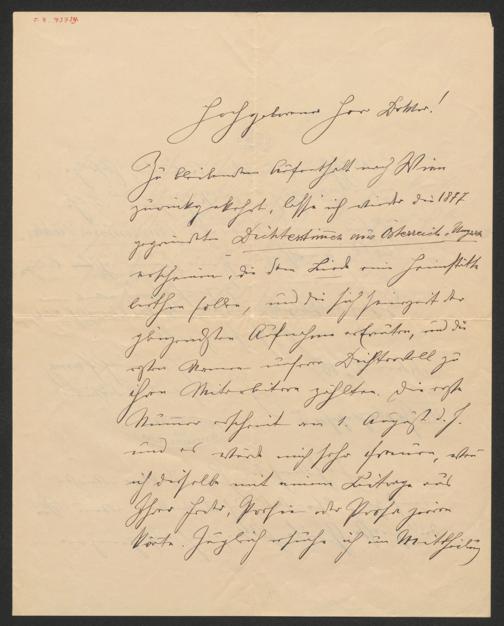 Hochgeborener Herr Doktor!
Zu bleibendem Aufenthalt nach Wien
zurückgekehrt, lasse ich wieder die 1877
gegründeten Dichterstimmen aus Österreich-Ungarn
erscheinen, die dem Liede eine Heimstätte
bieten sollen, und die sich seinerzeit der
Aufnahme erfreuten, und die
ersten Namen unserer Dichterwelt zu
ihren Mitarbeitern zählten. Die erste
Nummer erscheint am 1. August d. J.
und es würde mich sehr freuen, wenn
ich dieselbe mit einem Beitrage aus
Ihrer Feder, Poesie oder Prosa zieren
könnte. Zugleich ersuche ich um Mittheilung